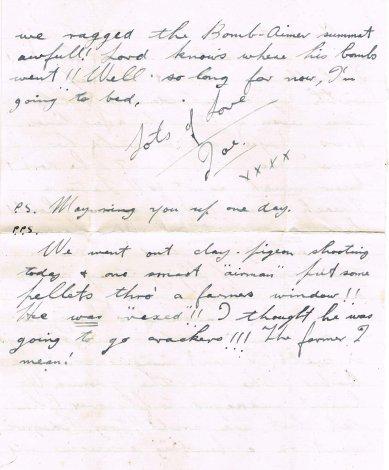 we ragged the Bomb-Aimer summat
awfull! Lord knows where his bombs
went!! Well so long for now, I'm
going to bed.
Lots of Love
Joe.
xxxx
P.S. May ring you up one day.
P.P.S.
We went out clay-pigeon shooting
today & one smart "airman" put some
pellets thro' a farmers window!!
He was vexed!! I thought he was
going to go crackers!!! The farmer I
mean!